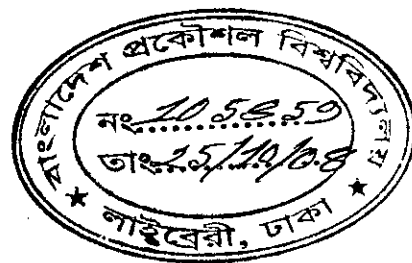 বাংলাদেশ প্রকৌশল বিশ্ববিদ্যালয়
নং 105859
তাং 25/10/08
★ লাইব্রেরী, ঢাকা ★